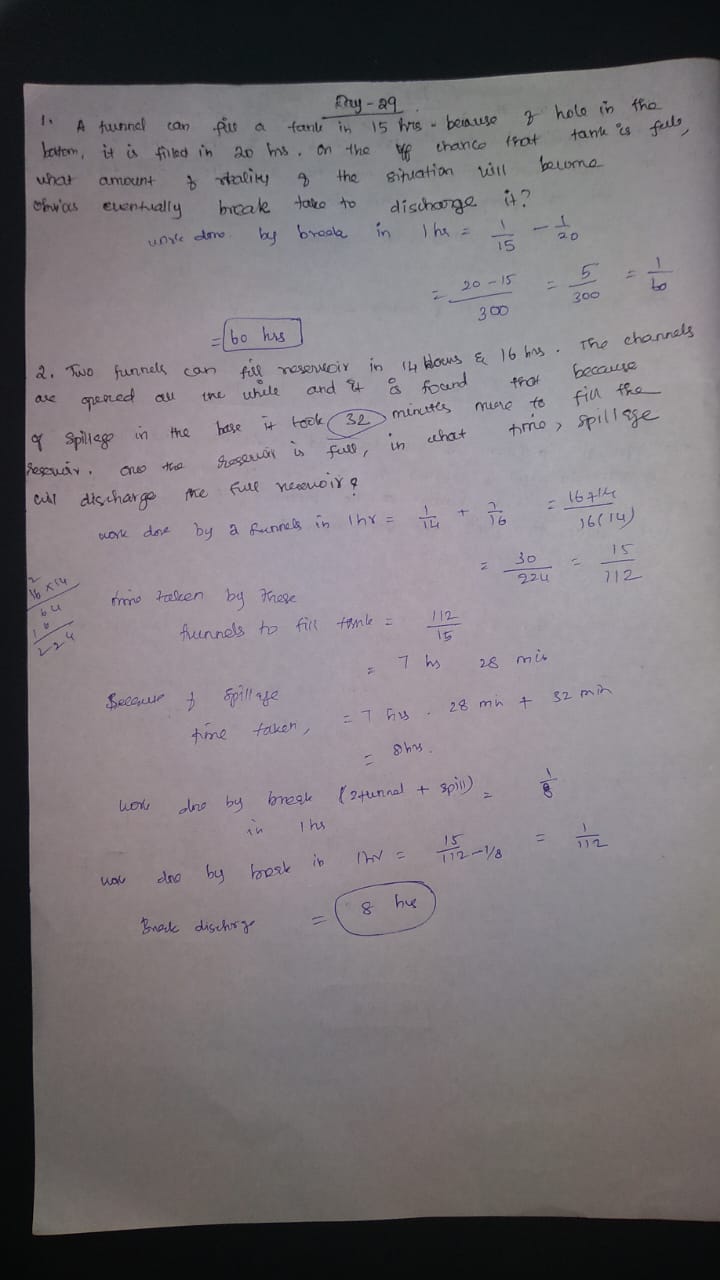 Day - 29
1. A funnel can fill a tank in 15 hrs - because of hole in the
bottom, it is filled in 20 hrs. On the off chance that tank is full,
what amount of reality of the situation will become
obvious eventually break take to discharge it?
work done by break in 1 hr = 1/15 - 1/20
= 20 - 15/300 = 5/300 = 1/60
= 60 hrs
2. Two funnels can fill reservoir in 14 hours & 16 hrs. The channels
are opened all the while and it is found that because
of spillage in the base it took 32 minutes more to fill the
reservoir. the reservoir is full, in what time, spillage
will discharge the full reservoir?
work done by 2 funnels in 1 hr = 1/14 + 1/16 = 16+14/16(14)
= 30/224 = 15/112
2
16 x 14
64
16
224
time taken by these
funnels to fill tank = 112/15
= 7 hs 28 min
Because of spillage
time taken, = 7 hrs . 28 min + 32 min
= 8 hrs.
work done by break (2 funnel + spill) = 1/8
in 1 hrs
work done by break in 1 hr = 15/112 - 1/8 = 1/112
Break discharge = 8 hrs